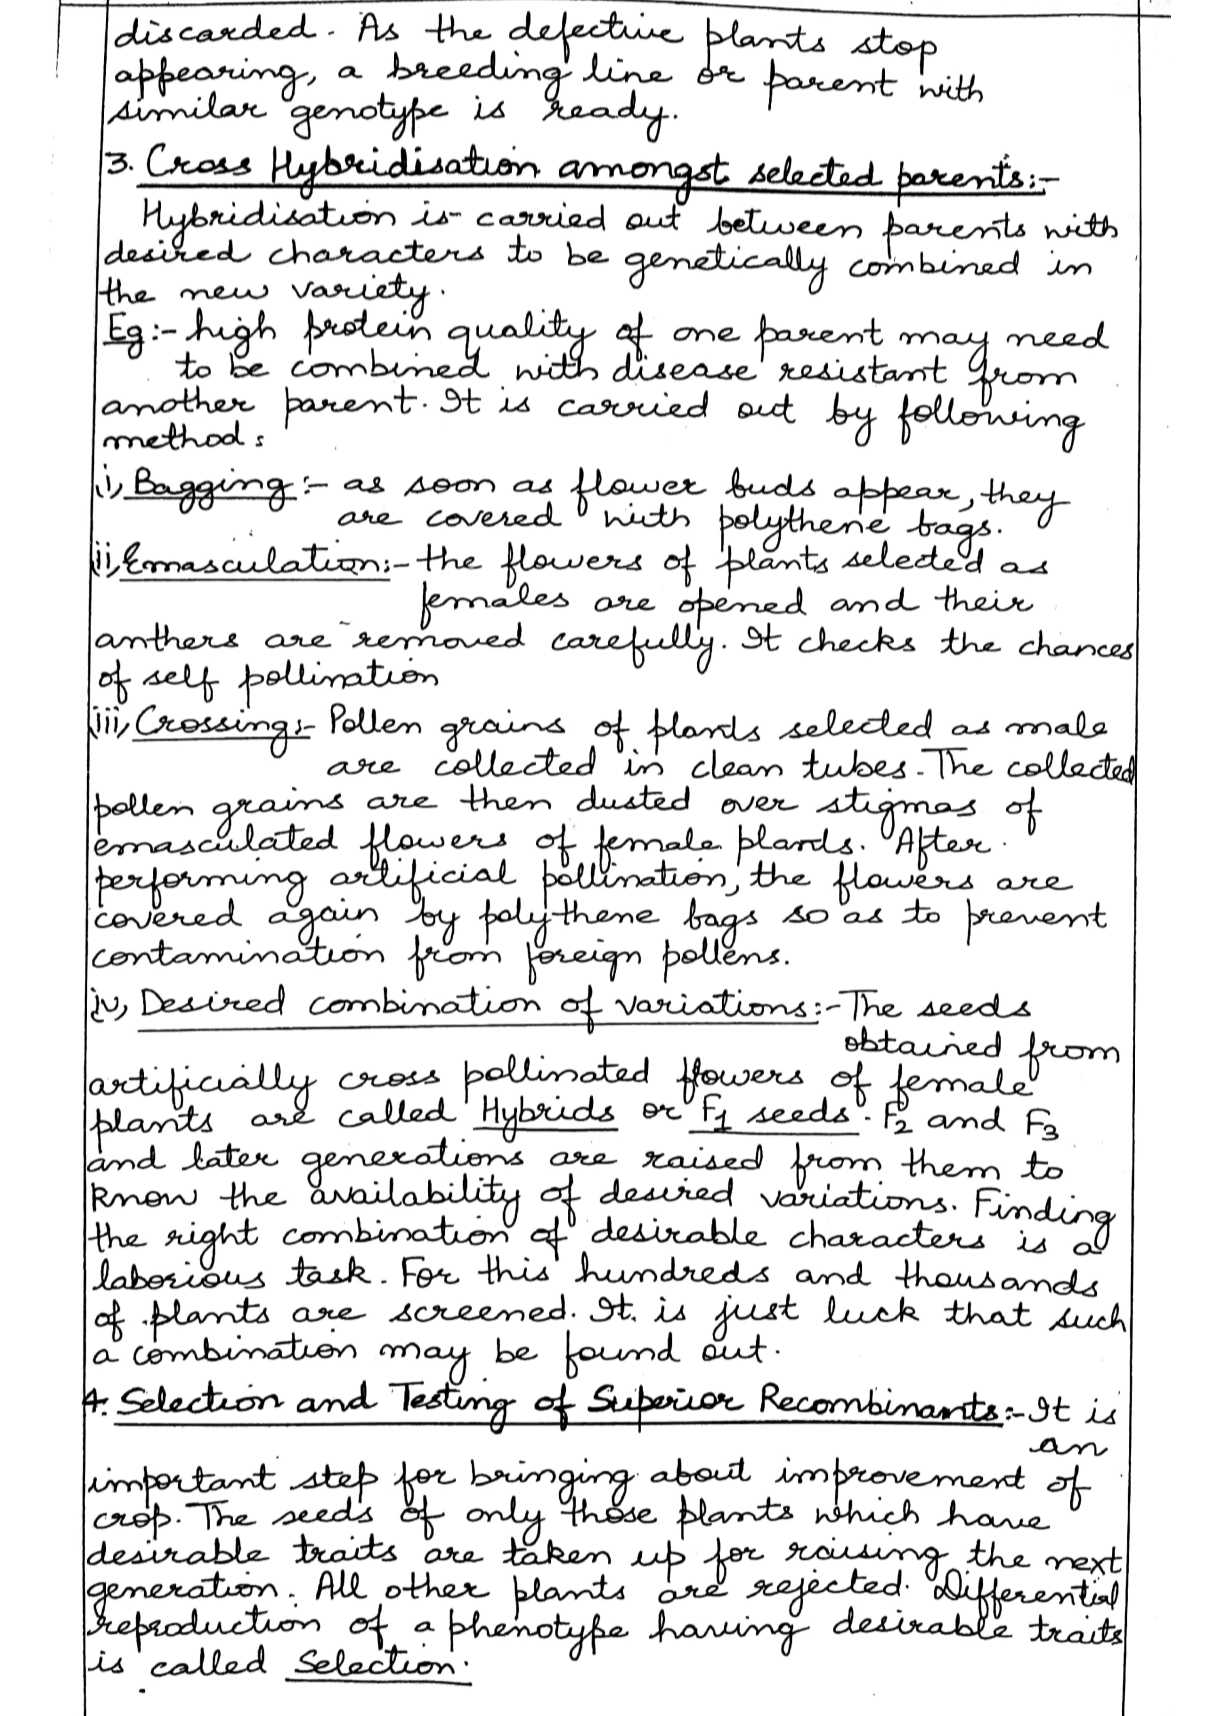 discarded. As the defective plants stop
appearing, a breeding line or parent with
similar genotype is ready.
3. Cross Hybridisation amongst selected parents:-
Hybridisation is carried out between parents with
desired characters to be genetically combined in
the new variety.
Eg:- high protein quality of one parent may need
to be combined with disease resistant from
another parent. It is carried out by following
method:
i, Bagging:- as soon as flower buds appear, they
are covered with polythene bags.
ii, Emasculation:- the flowers of plants selected as
females are opened and their
anthers are removed carefully. It checks the chances
of self pollination
iii, Crossing:- Pollen grains of plants selected as male
are collected in clean tubes. The collected
pollen grains are then dusted over stigmas of
emasculated flowers of female plants. After
performing artificial pollination, the flowers are
covered again by polythene bags so as to prevent
contamination from foreign pollens.
iv, Desired combination of variations:- The seeds
obtained from
artificially cross pollinated flowers of female
plants are called Hybrids or F1 seeds. F2 and F3
and later generations are raised from them to
know the availability of desired variations. Finding
the right combination of desirable characters is a
laborious task. For this hundreds and thousands
of plants are screened. It is just luck that such
a combination may be found out.
4. Selection and Testing of Superior Recombinants:- It is
an
important step for bringing about improvement of
crop. The seeds of only those plants which have
desirable traits are taken up for raising the next
generation. All other plants are rejected. Differential
reproduction of a phenotype having desirable traits
is called Selection.